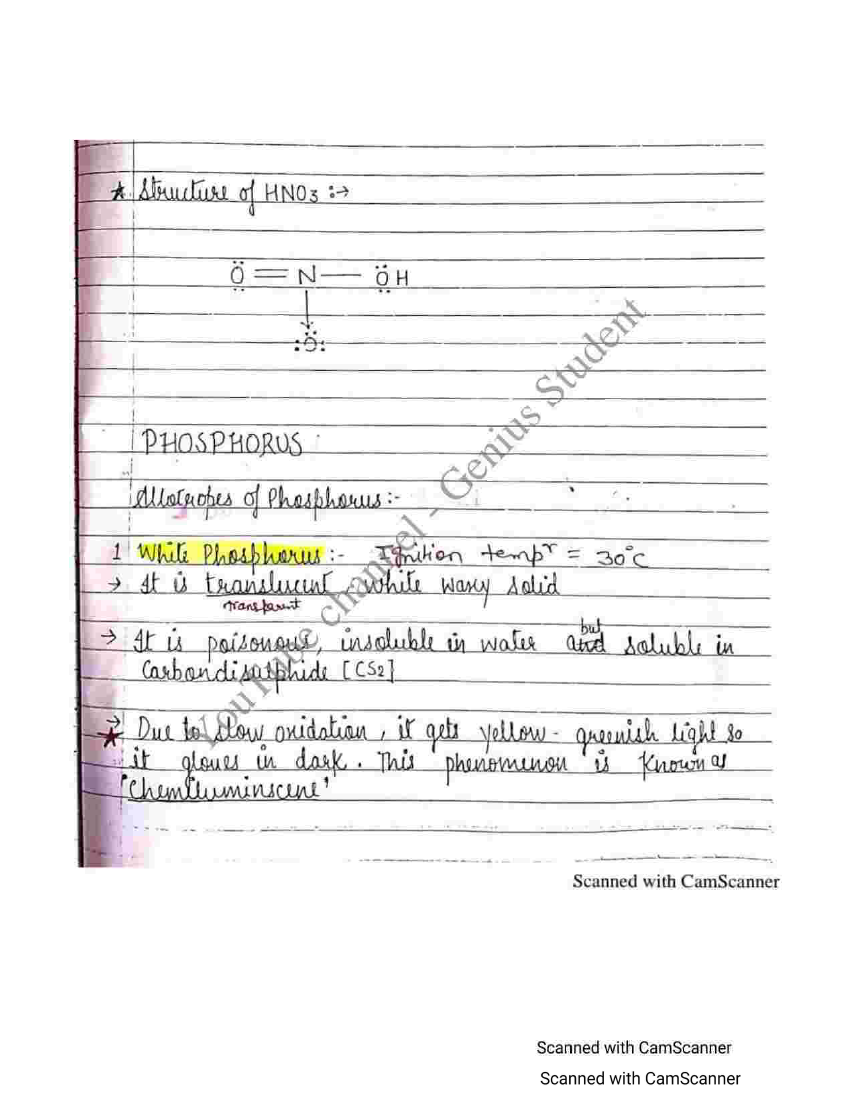 ★ Structure of HNO3 :→
Ö = N — ÖH
↓
:Ö:
PHOSPHORUS
Allotropes of Phosphorus:-
1 White Phosphorus :- Ignition tempr = 30°C
→ It is translucent white waxy solid
transparent
but
→ It is poisonous, insoluble in water and soluble in
Carbondisulphide [CS2]
→ Due to slow oxidation, it gets yellow-greenish light so
★ it gloues in dark. This phenomenon is known as
'Chemiluminscene'
YouTube channel - Genius Student
Scanned with CamScanner
Scanned with CamScanner
Scanned with CamScanner